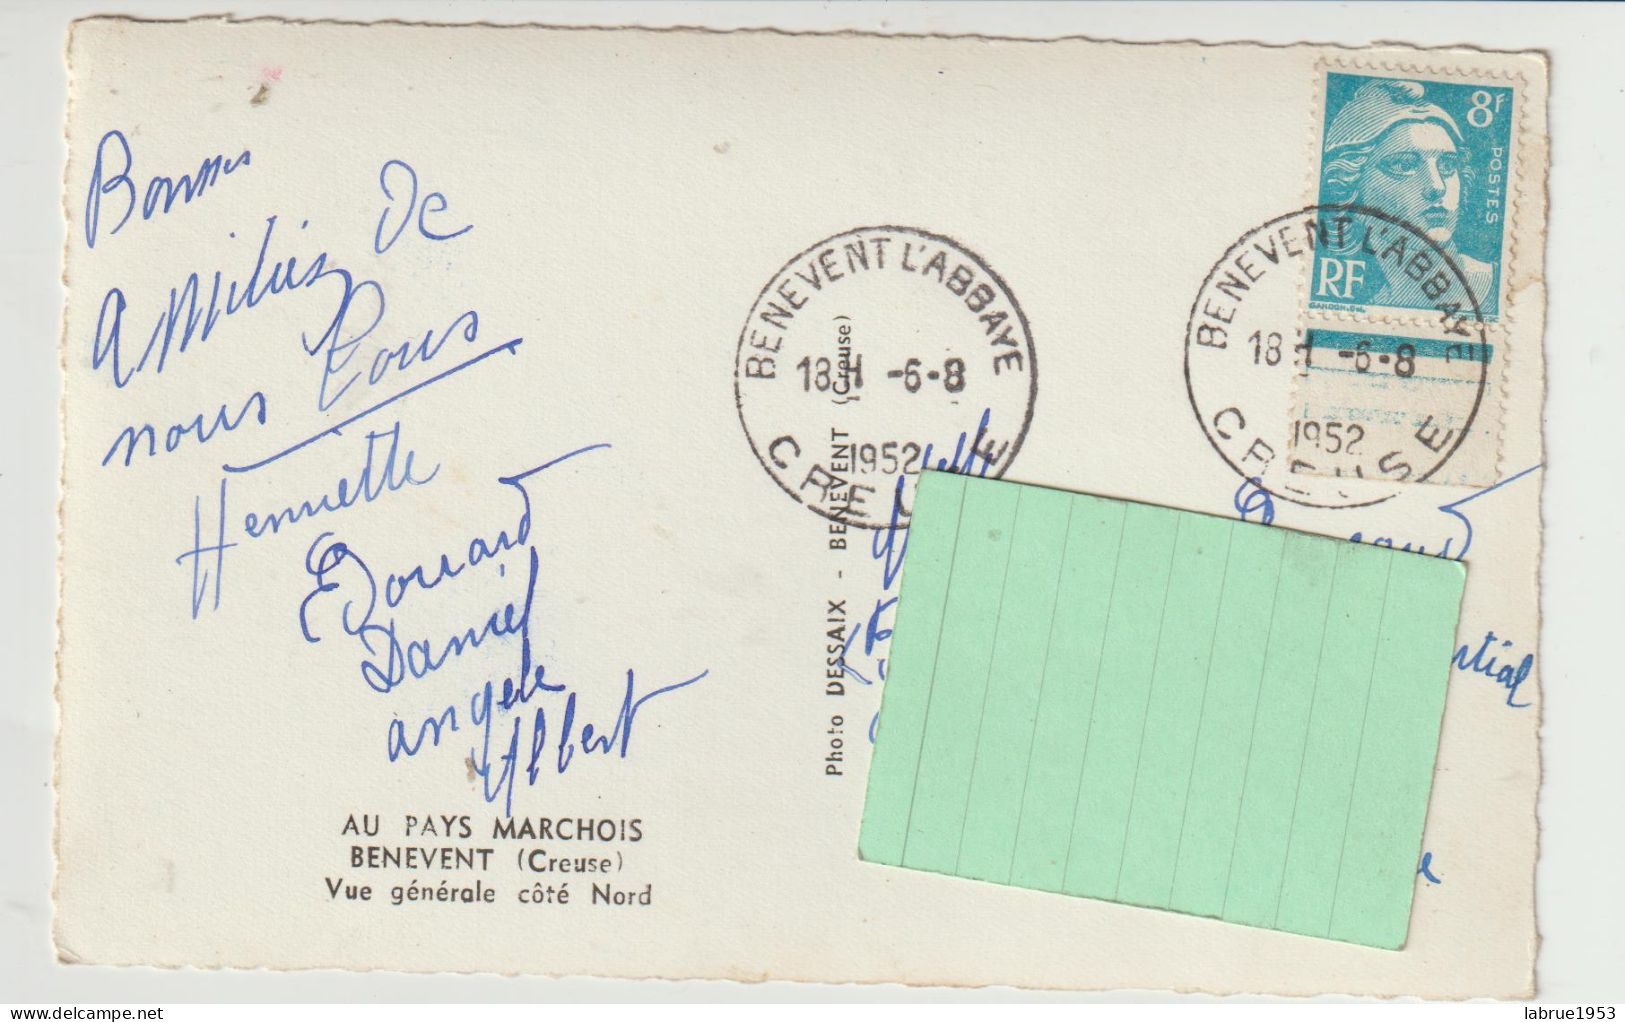 Bonnes
Amitiés de
nous tous
Henriette
Edouard
Daniel
angele
Albert
AU PAYS MARCHOIS
BENEVENT (Creuse)
Vue générale côté Nord
Photo DESSAIX - BENEVENT (Creuse)
BENEVENT L'ABBAYE
18 H -6-8
1952
CREUSE
8F
POSTES
RF
BENEVENT L'ABBAYE
18 H -6-8
1952
CREUSE
labrue1953